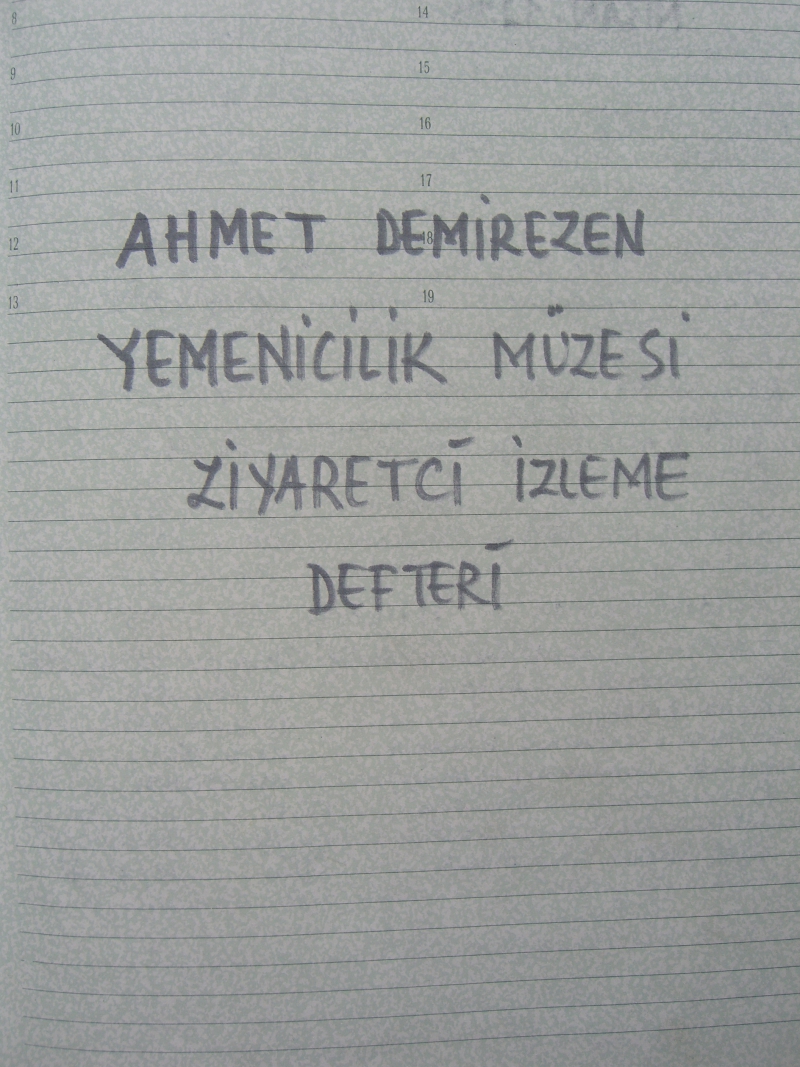 8 14
9 15
10 16
11 17
AHMET DEMİREZEN
12 18
13 19
YEMENİCİLİK MÜZESİ
ZİYARETCİ İZLEME
DEFTERİ